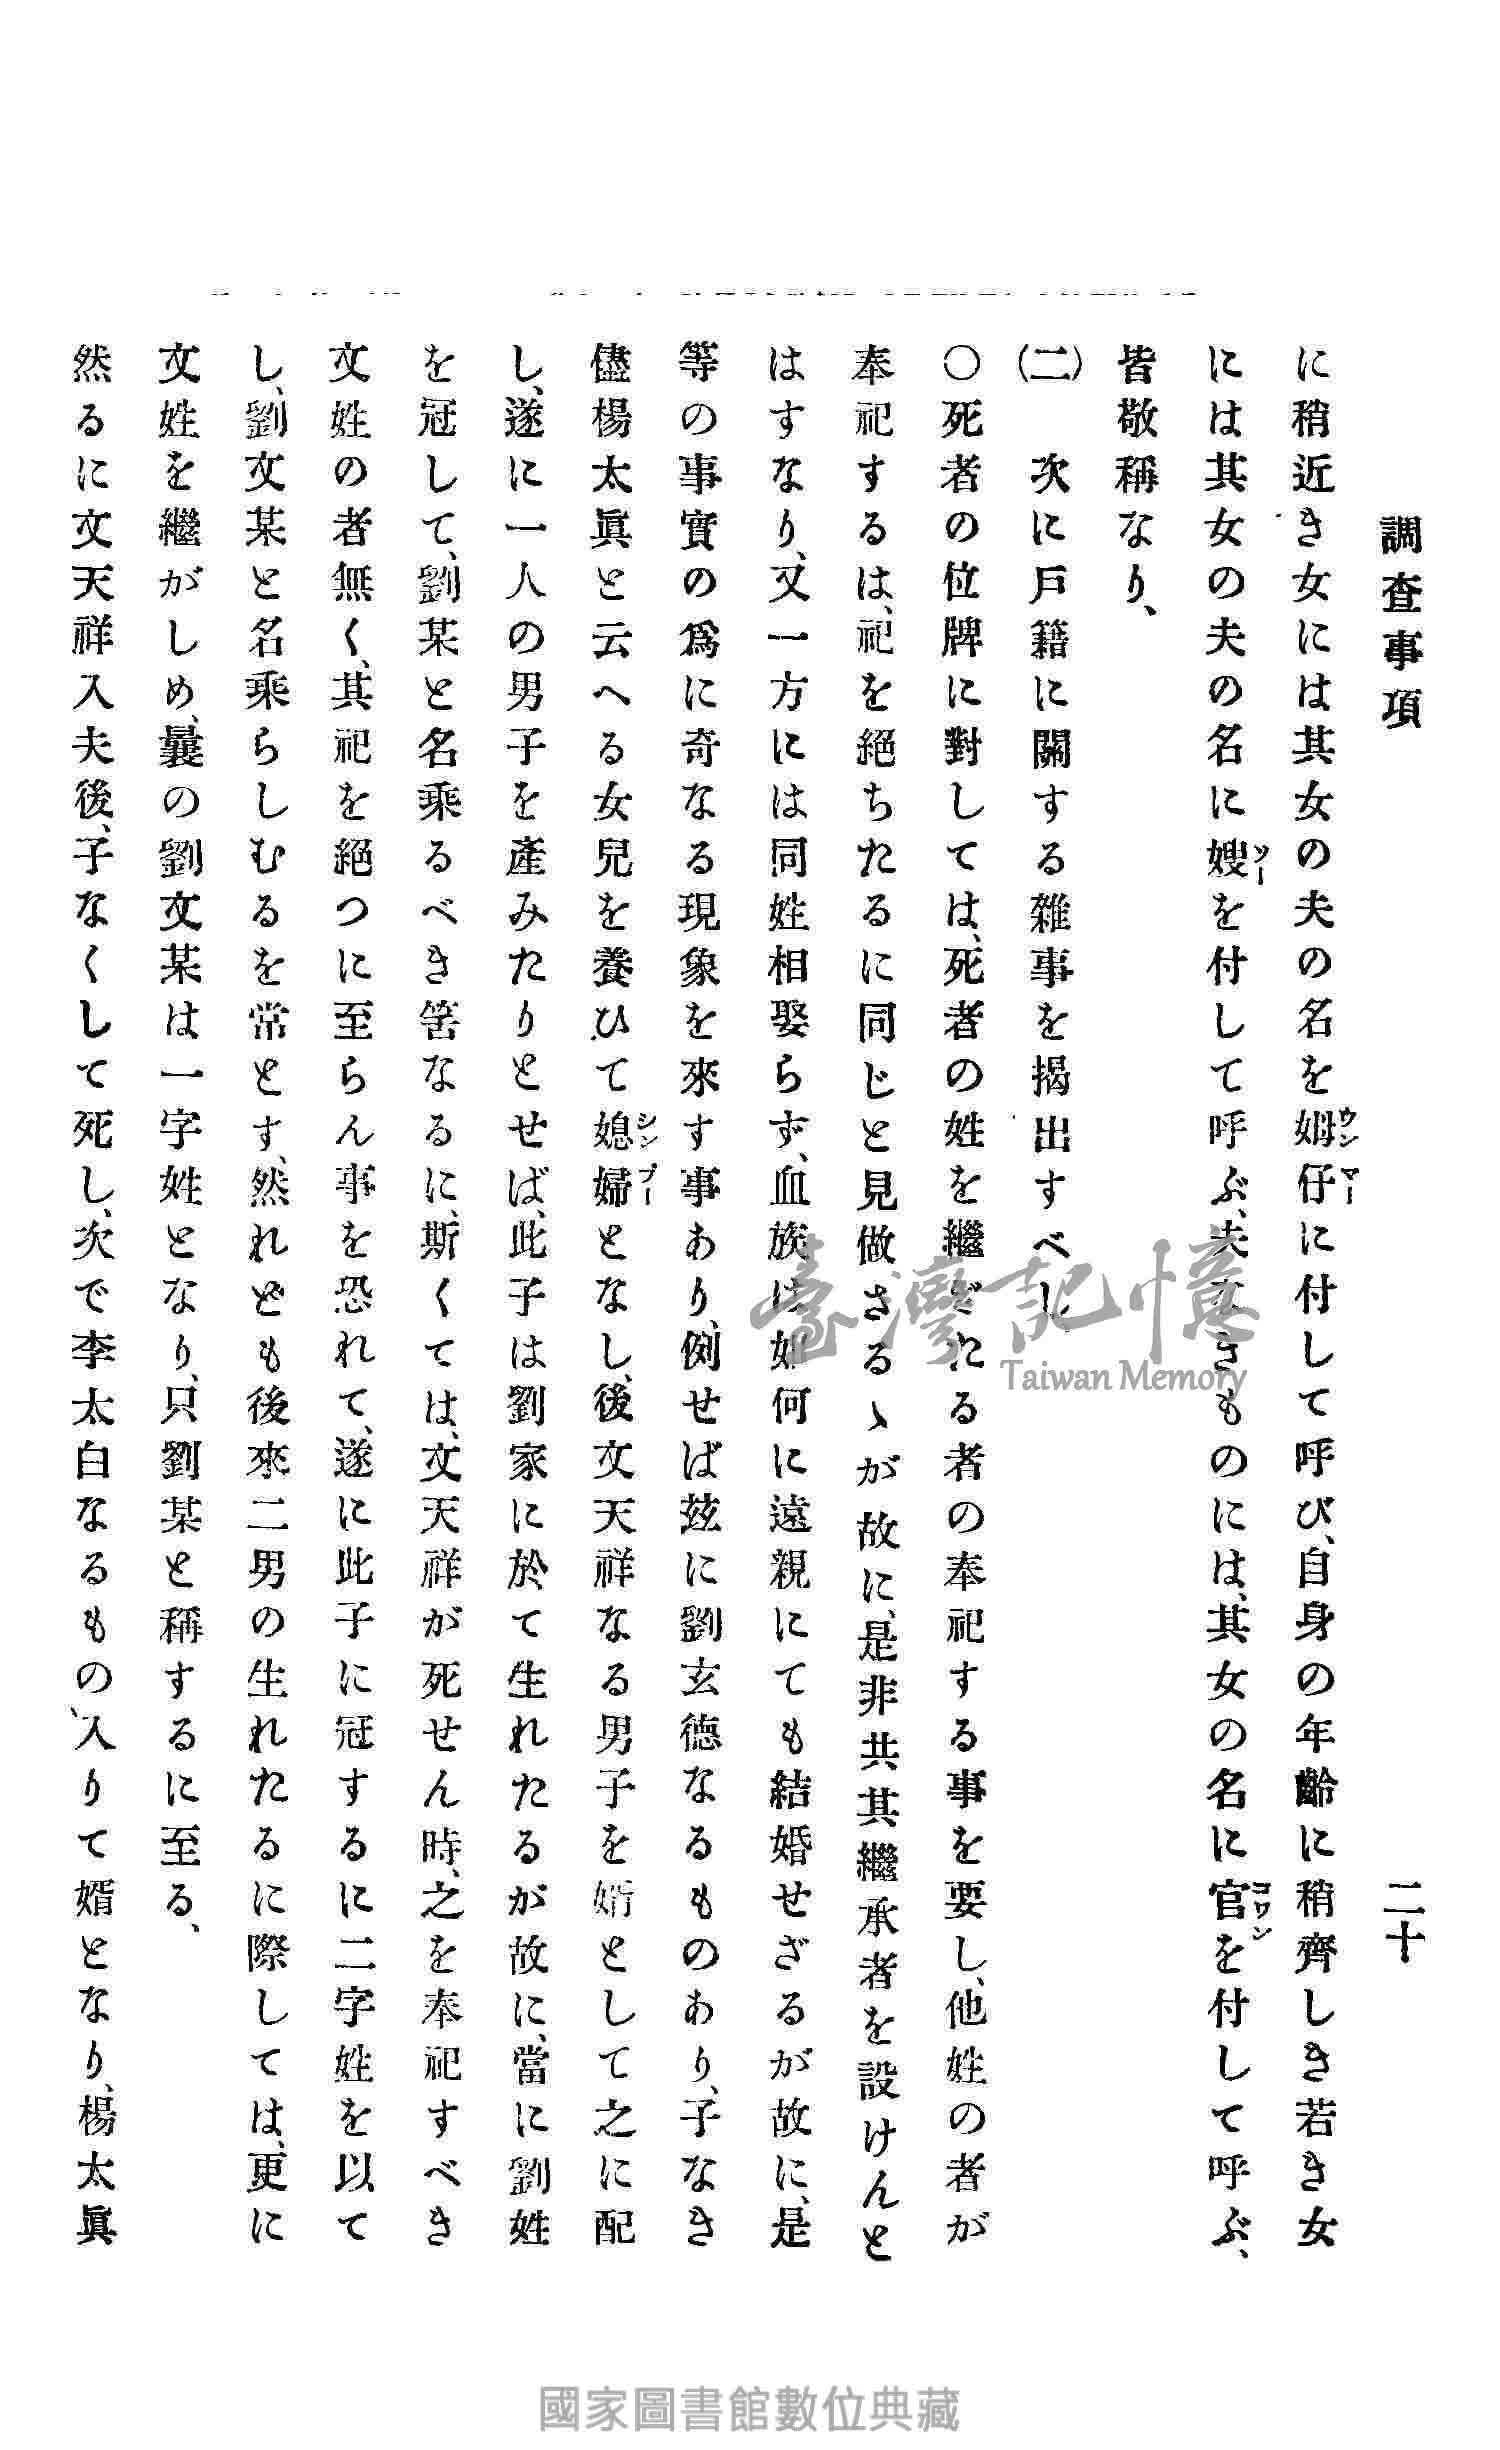 調査事項 二十
に稍近き女には其女の夫の名を姆仔に付して呼び、自身の年齡に稍齊しき若き女
ウンマー
には其女の夫の名に嫂を付して呼ぶ、夫なきものには、其女の名に官を付して呼ぶ、
ソー
コワン
皆敬稱なり、
(二) 次に戸籍に關する雜事を揭出すべし、
〇死者の位牌に對しては、死者の姓を繼ぎたる者の奉祀する事を要し、他姓の者が
奉祀するは、祀を絕ちたるに同じと見做さるゝが故に、是非共其繼承者を設けんと
はすなり、又一方には同姓相娶らず、血族は如何に遠親にても結婚せざるが故に、是
等の事實の爲に奇なる現象を來す事あり、例せば玆に劉玄德なるものあり、子なき
儘楊太眞と云へる女兒を養ひて媳婦となし、後文天祥なる男子を婿として之に配
シンプー
し、遂に一人の男子を產みたりとせば、此子は劉家に於て生れたるが故に、當に劉姓
を冠して、劉某と名乘るべき筈なるに、斯くては、文天祥が死せん時、之を奉祀すべき
文姓の者無く、其祀を絕つに至らん事を恐れて、遂に此子に冠するに二字姓を以て
し、劉文某と名乘らしむるを常とす、然れども後來二男の生れたるに際しては、更に
文姓を繼がしめ、曩の劉文某は一字姓となり、只劉某と稱するに至る、
然るに文天祥入夫後、子なくして死し、次で李太白なるもの、入りて婿となり、楊太眞
臺灣記憶
Taiwan Memory
國家圖書館數位典藏